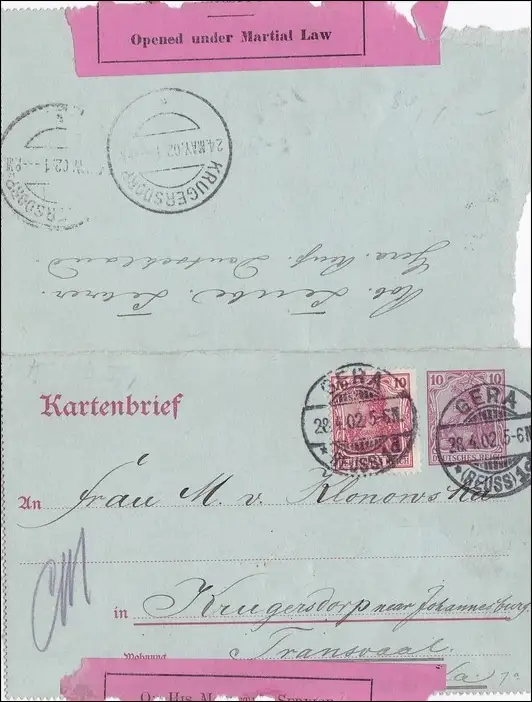 Opened under Martial Law
KRUGERSDORP
24.MAY.02.1
02.1
RSDORP
Gera. Reuß. Deutschland.
Abs. Lehrer.
Kartenbrief
10 10
GERA
28.4.02.5-6N
(REUSS)
10 10
DEUTSCHES REICH
GERA
28.4.02.5-6N
(REUSS)
An Frau M. v. Klonowska
in Krugersdorp near Johannesburg
Wohnung Transvaal
On His Majesty's Service